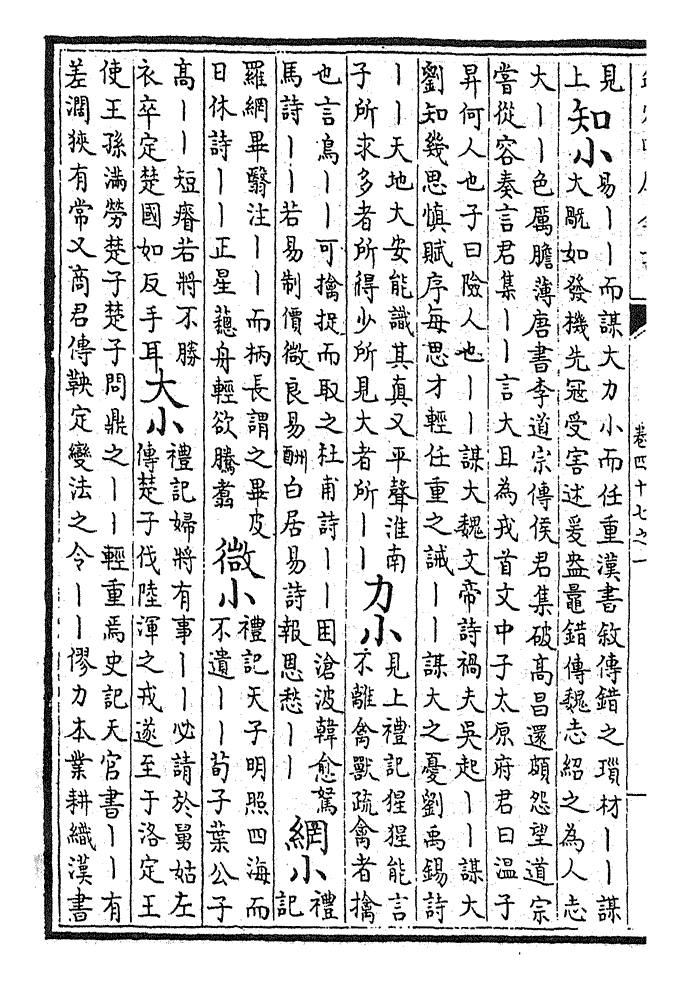 卷四十七之一
見
上
知小
易丨丨而謀大力小而任重漢書敘傳錯之瑣材丨丨謀
大旤如發機先冠受害述爰盎鼂錯傳魏志紹之為人志
大丨丨色厲膽薄唐書李道宗傳侯君集破高昌還頗怨望道宗
嘗從容奏言君集丨丨言大且為戎首文中子太原府君曰溫子
昇何人也子曰險人也丨丨謀大魏文帝詩禍夫吳起丨丨謀大
劉知幾思慎賦序每思才輕任重之誡丨丨謀大之憂劉禹錫詩
丨丨天地大安能識其真又平聲淮南
子所求多者所得少所見大者所丨丨
力小
見上禮記猩猩能言
不離禽獸疏禽者擒
也言鳥丨丨可擒捉而取之杜甫詩丨丨困滄波韓愈駑
馬詩丨丨若易制價微良易酬白居易詩報恩愁丨丨
網小
禮
記
羅網畢翳注丨丨而柄長謂之畢皮
日休詩丨丨正星舟輕欲騰翥
微小
禮記天子明照四海而
不遺丨丨荀子葉公子
高丨丨短瘠若將不勝
衣卒定楚國如反手耳
大小
禮記婦將有事丨丨必請於舅姑左
傳楚子伐陸渾之戎遂至于洛定王
使王孫滿勞楚子楚子問鼎之丨丨輕重焉史記天官書丨丨有
差濶狹有常又商君傳鞅定變法之令丨丨僇力本業耕織漢書